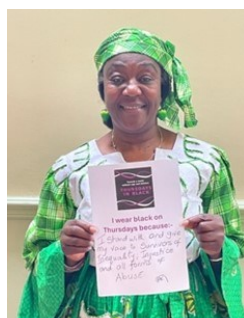 THURSDAYS
IN BLACK
I wear black on
Thursdays because:-
I stand with and give
my voice to Survivors of
Inequality, Injustice
and all forms of
Abuse.